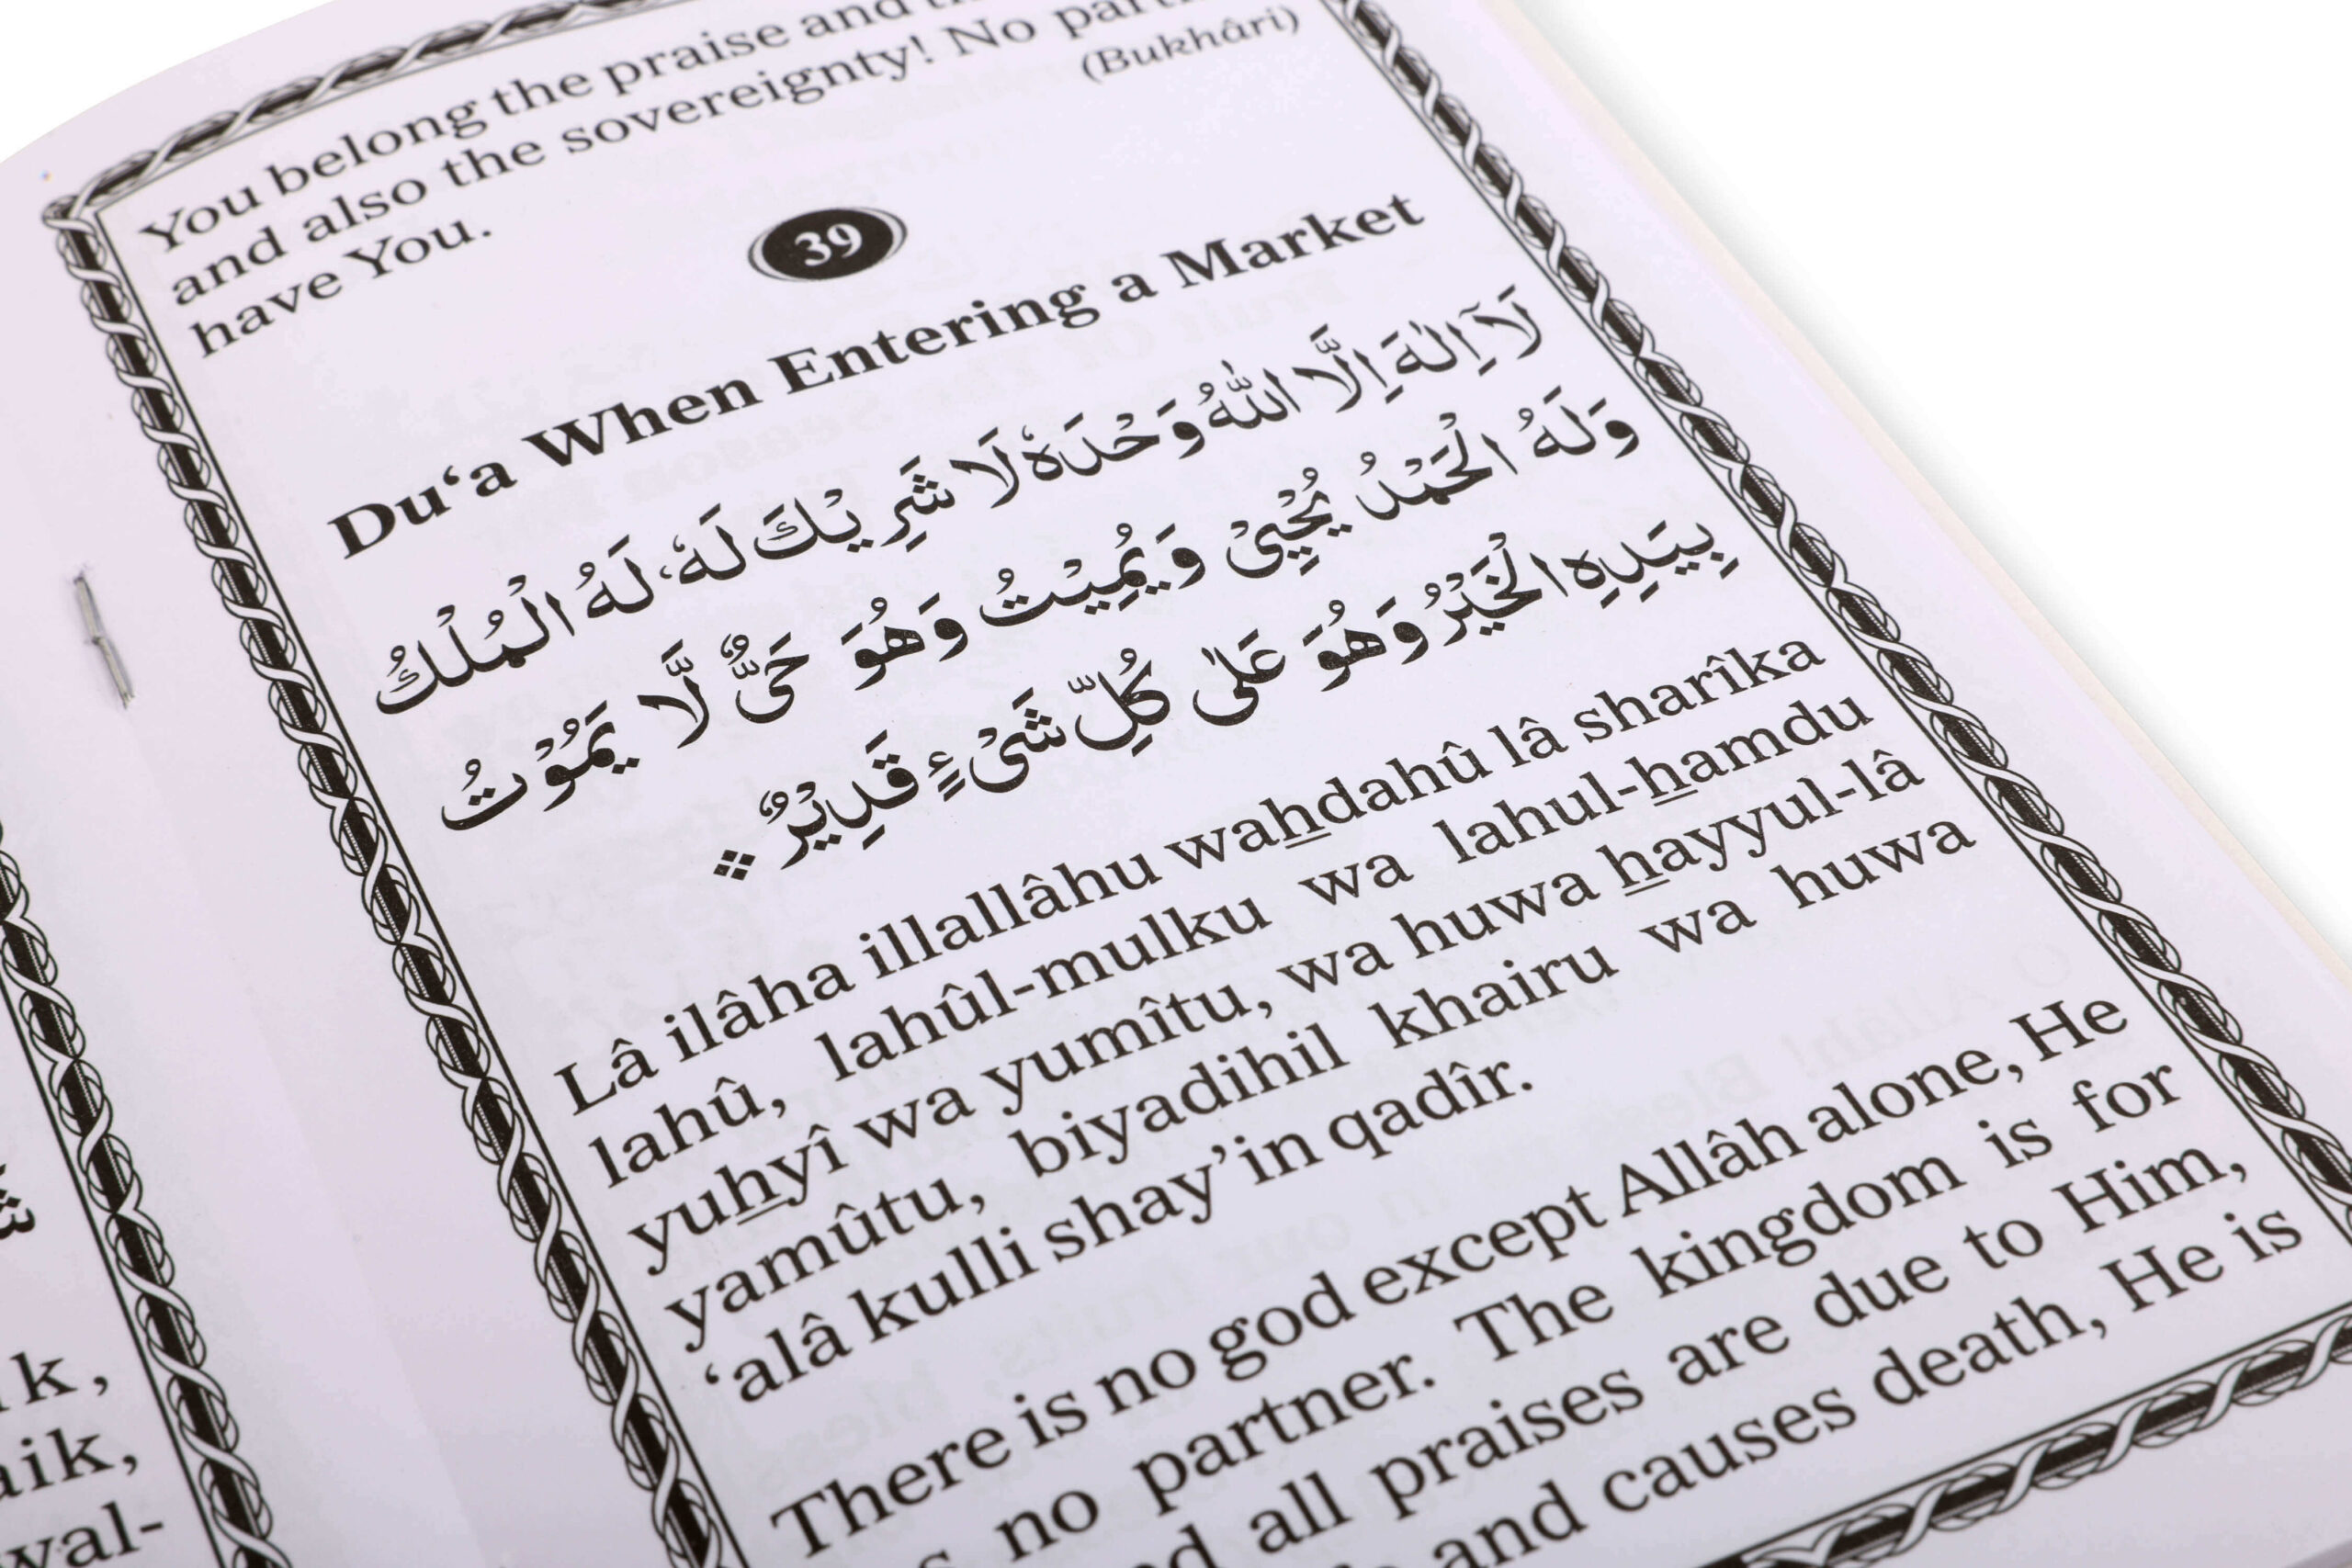 You belong the praise and
and also the sovereignty! No
have You.
(Bukhâri)
39
Du‘a When Entering a Market
لَآ اِلٰهَ اِلَّا اللّٰهُ وَحْدَهٗ لَا شَرِيْكَ لَهٗ، لَهُ الْمُلْكُ
وَلَهُ الْحَمْدُ يُحْيِىْ وَيُمِيْتُ وَهُوَ حَىٌّ لَّا يَمُوْتُ
بِيَدِهِ الْخَيْرُ وَهُوَ عَلٰى كُلِّ شَىْءٍ قَدِيْرٌ
Lâ ilâha illallâhu wahdahû lâ sharîka
lahû, lahûl-mulku wa lahul-hamdu
yuhyî wa yumîtu, wa huwa hayyul-lâ
yamûtu, biyadihil khairu wa huwa
‘alâ kulli shay’in qadîr.
There is no god except Allâh alone, He
no partner. The kingdom is for
all praises are due to Him,
and causes death, He is